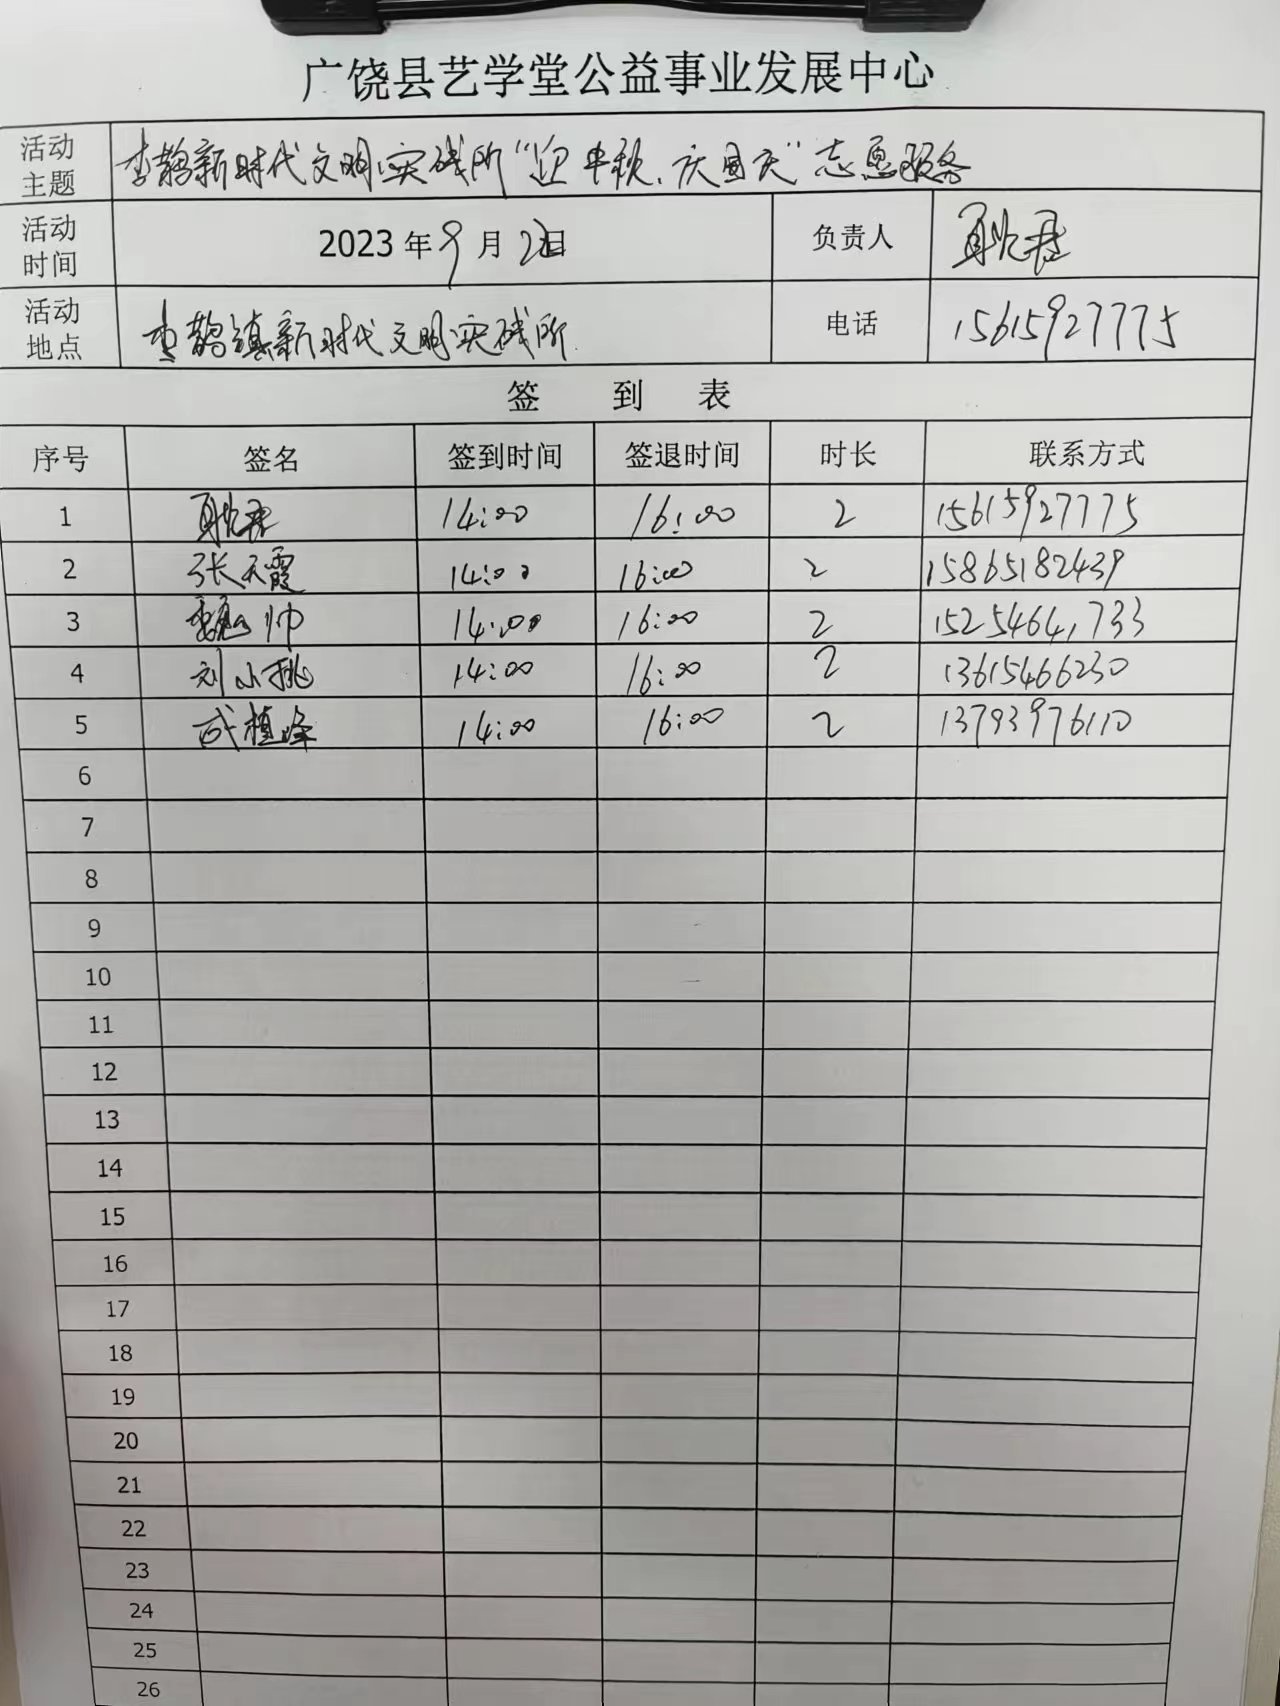 广饶县艺学堂公益事业发展中心
活动主题 李鹊新时代文明实践所“迎中秋、庆国庆”志愿服务
活动时间 2023年9月2日 负责人
活动地点 李鹊镇新时代文明实践所 电话 15615927775
签 到 表
序号 签名 签到时间 签退时间 时长 联系方式
1 14:00 16:00 2 15615927775
2 张天霞 14:00 16:00 2 15865182439
3 魏帅 14:00 16:00 2 15254641733
4 刘小桃 14:00 16:00 2 13615466230
5 成植峰 14:00 16:00 2 13793976110
6
7
8
9
10
11
12
13
14
15
16
17
18
19
20
21
22
23
24
25
26